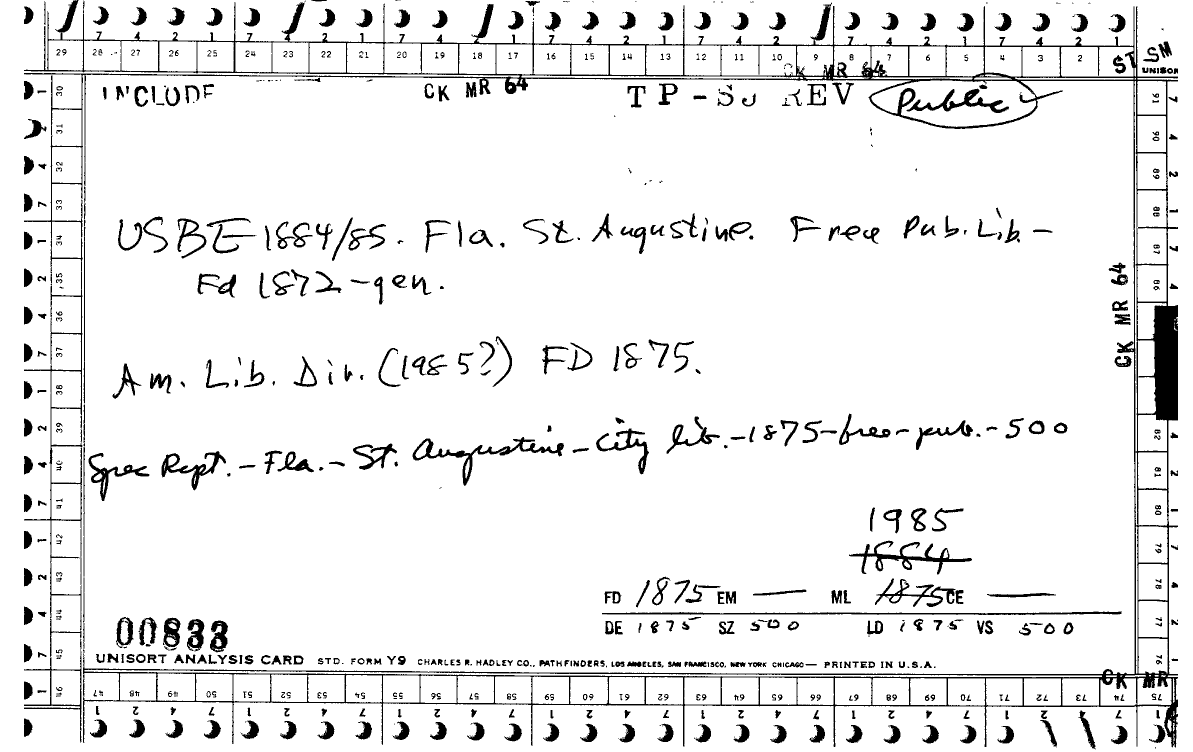 7 4 2 1 7 4 2 1 7 4 2 1 7 4 2 1 7 4 2 1 7 4 2 1 7 4 2 1
29 28 27 26 25 24 23 22 21 20 19 18 17 16 15 14 13 12 11 10 9 8 7 6 5 4 3 2 ST SM
UNISOR
CK MR 64
INCLUDE CK MR 64 TP - SJ REV Public
USBE 1884/85. Fla. St. Augustine. Free Pub. Lib. -
Fd 1872 - gen.
CK MR 64
Am. Lib. Dir. (1985?) FD 1875.
Spec Rept. - Fla. - St. Augustine - City lib. - 1875 - free - pub. - 500
1985
1884
FD 1875 EM — ML 1875 CE —
DE 1875 SZ 500 LD 1875 VS 500
00833
UNISORT ANALYSIS CARD STD. FORM Y9 CHARLES R. HADLEY CO., PATHFINDERS, LOS ANGELES, SAN FRANCISCO, NEW YORK CHICAGO — PRINTED IN U.S.A.
CK MR
46 47 48 49 50 51 52 53 54 55 56 57 58 59 60 61 62 63 64 65 66 67 68 69 70 71 72 73 74 75
1 2 4 7 1 2 4 7 1 2 4 7 1 2 4 7 1 2 4 7 1 2 4 7 1 2 4 7 1